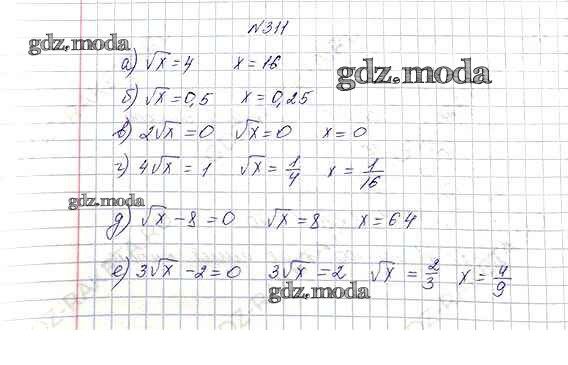 N311
gdz.moda
а) √x = 4 x = 16
gdz.moda
б) √x = 0,5 x = 0,25
в) 2√x = 0 √x = 0 x = 0
г) 4√x = 1 √x = 1/4 x = 1/16
gdz.moda
д) √x - 8 = 0 √x = 8 x = 64
е) 3√x - 2 = 0 3√x = 2 √x = 2/3 x = 4/9
gdz.moda